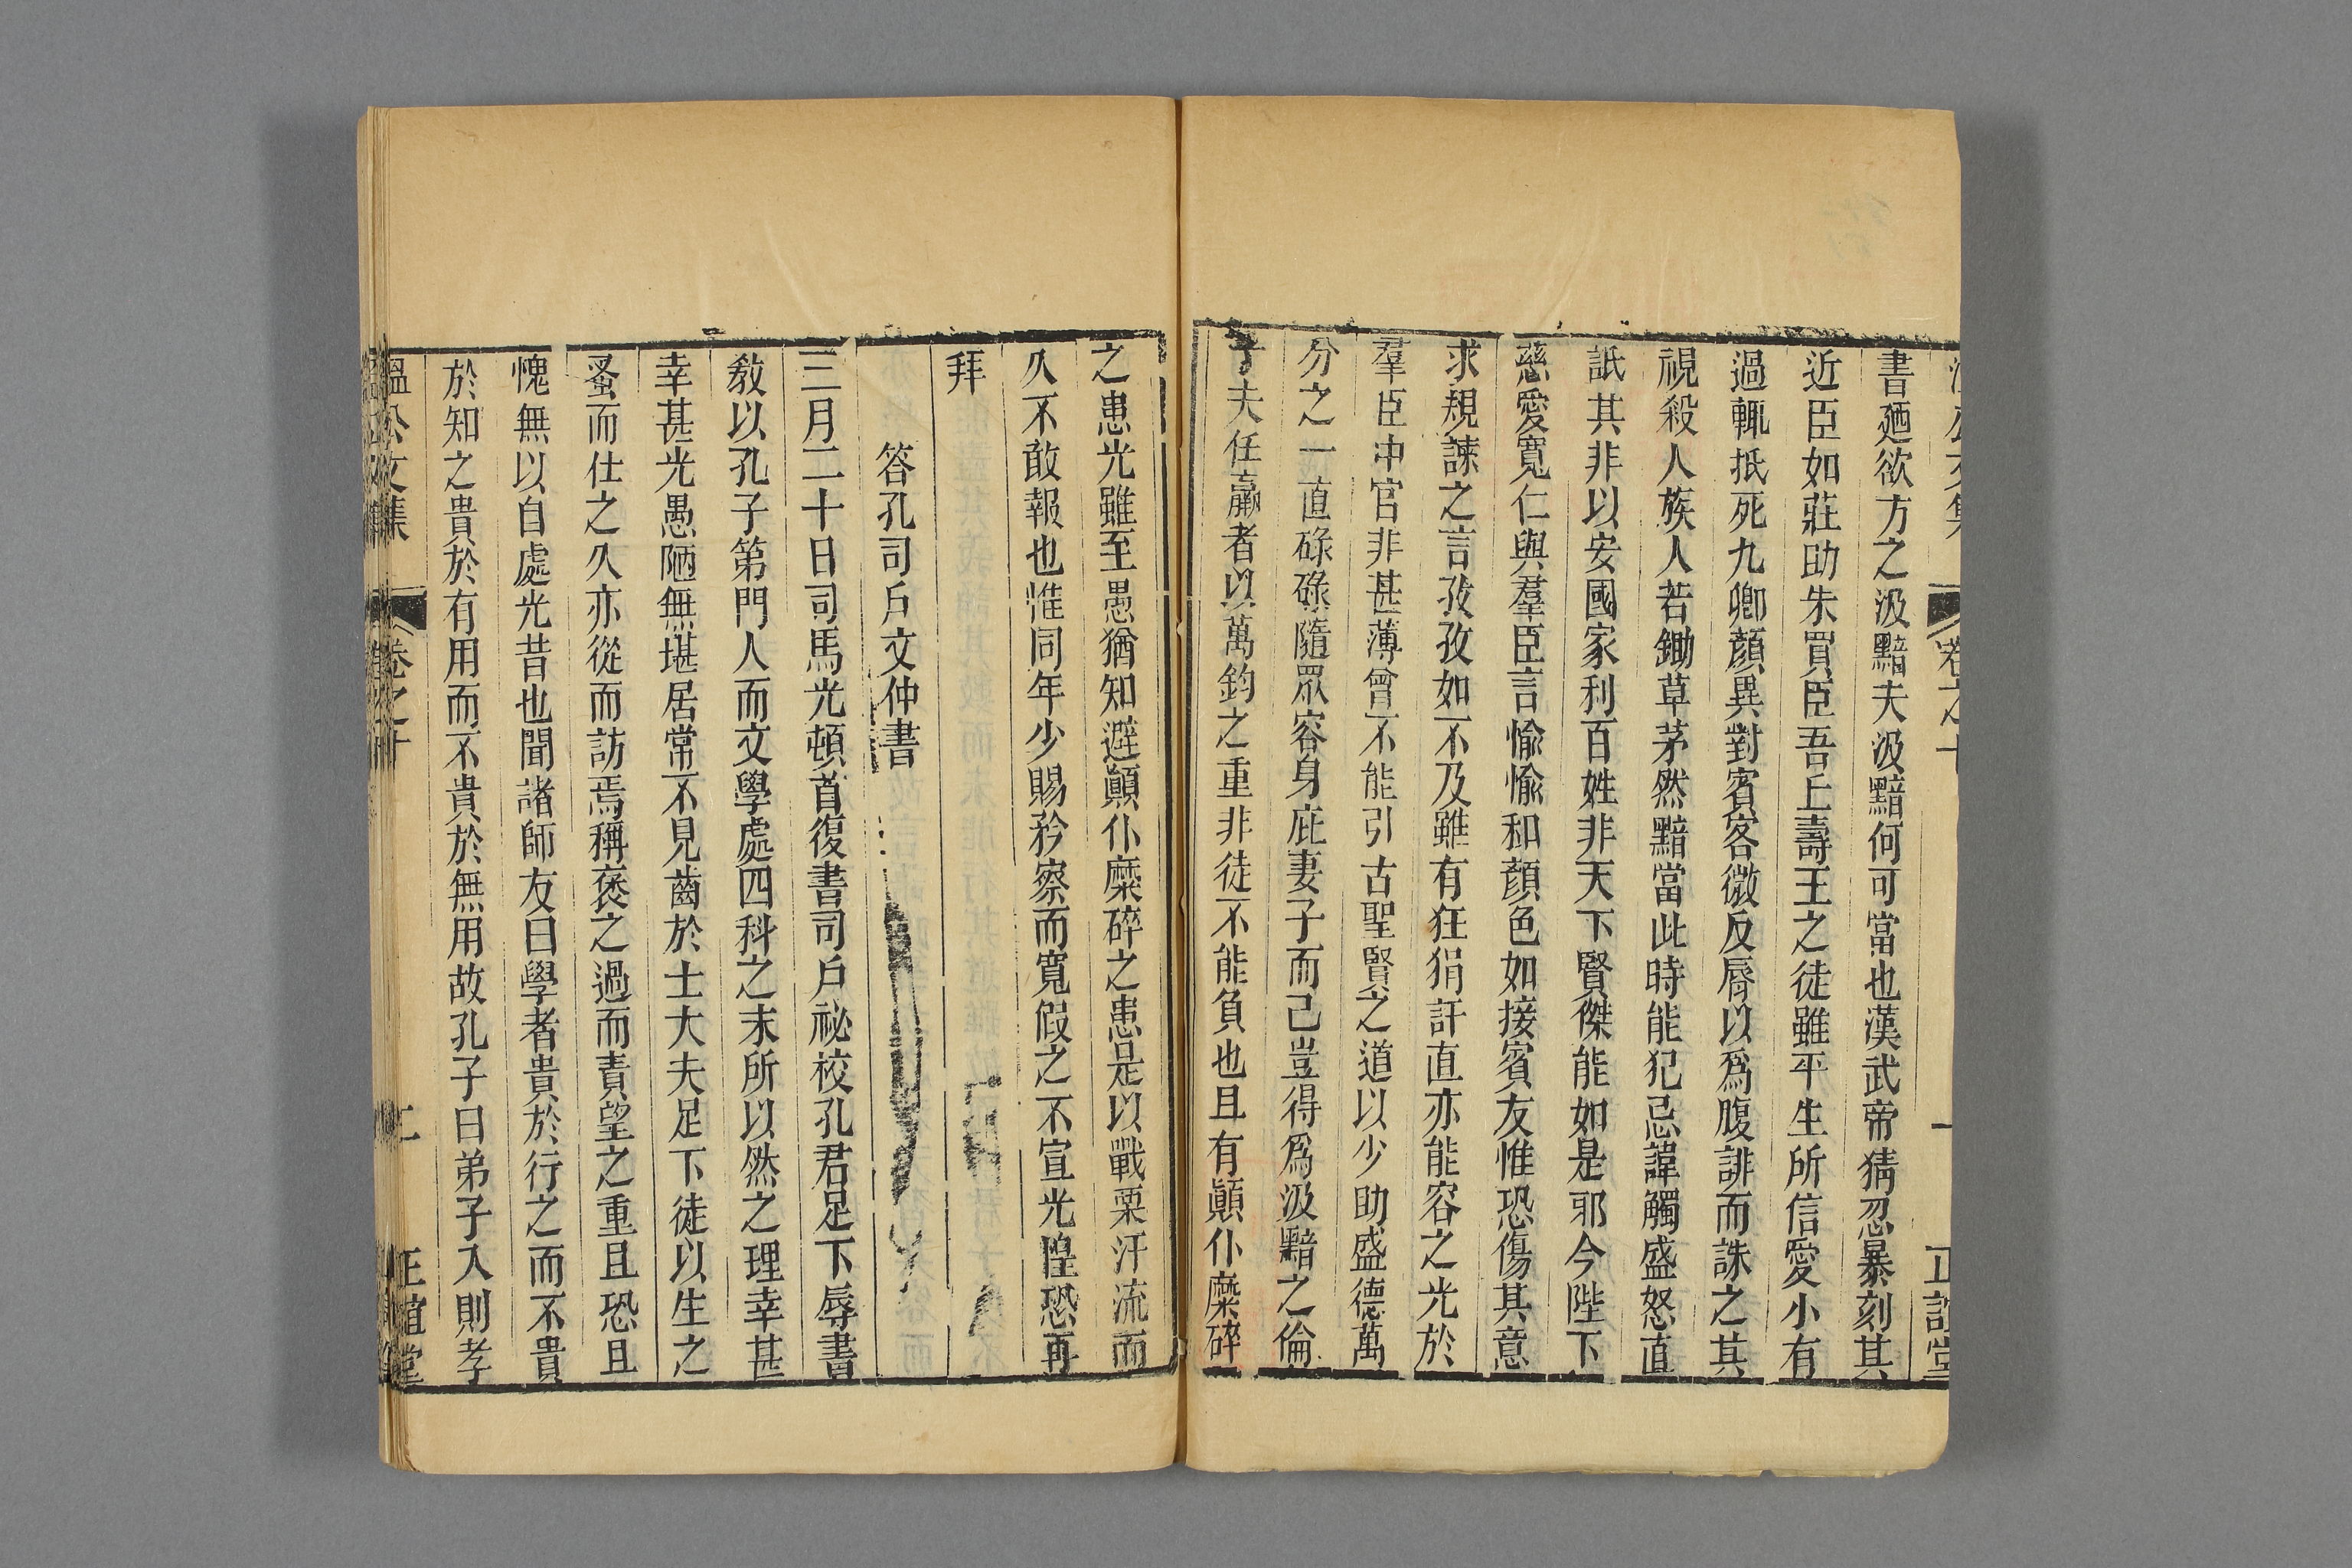 書廼欲方之汲黯夫汲黯何可當也漢武帝猜忍暴刻其
近臣如莊助朱買臣吾丘壽王之徒雖平生所信愛小有
過輒抵死九卿顏異對賓客微反脣以爲腹誹而誅之其
視殺人族人若鋤草茅然黯當此時能犯忌諱觸盛怒直
詆其非以安國家利百姓非天下賢傑能如是邪今陛下
慈愛寬仁與羣臣言愉愉和顏色如接賓友惟恐傷其意
求規諫之言孜孜如不及雖有狂狷訐直亦能容之光於
羣臣中官非甚薄曾不能引古聖賢之道以少助盛德萬
分之一直碌碌隨眾容身庇妻子而已豈得爲汲黯之倫
乎夫任羸者以萬鈞之重非徒不能負也且有顚仆糜碎
之患光雖至愚猶知避顚仆糜碎之患是以戰栗汗流而
久不敢報也惟同年少賜矜察而寬假之不宣光惶恐再
拜
答孔司戶文仲書
三月二十日司馬光頓首復書司戶祕校孔君足下辱書
敎以孔子第門人而文學處四科之末所以然之理幸甚
幸甚光愚陋無堪居常不見齒於士大夫足下徒以生之
蚤而仕之久亦從而訪焉稱褒之過而責望之重且恐且
愧無以自處光昔也聞諸師友曰學者貴於行之而不貴
於知之貴於有用而不貴於無用故孔子曰弟子入則孝
溫公文集 卷之十 二 正誼堂